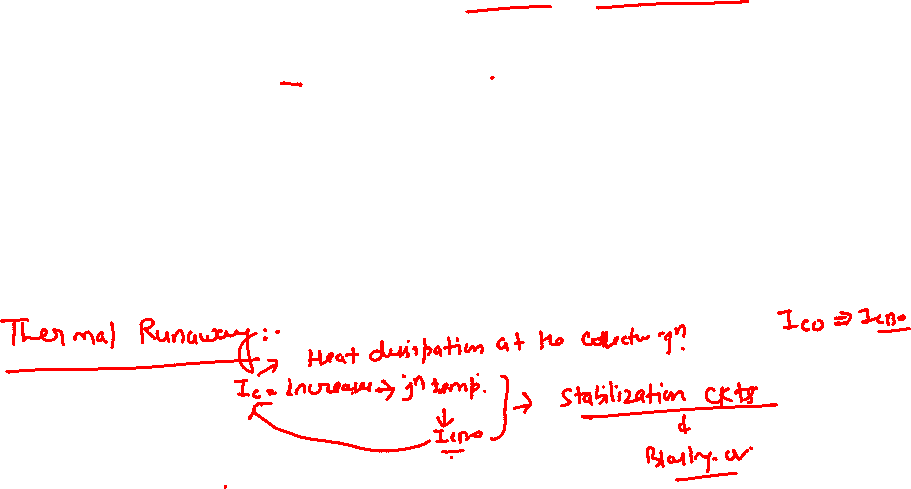 Thermal Runaway:-
→ Heat dissipation at the collector jn
I_CO ⇒ I_CBO
I_C = Increases → jn temp. → Stabilization CKTs
↓ I_CBO
&